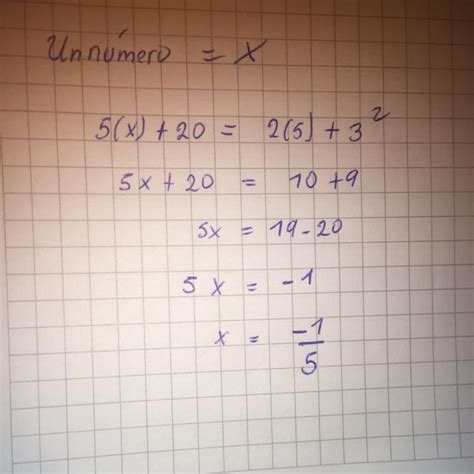 Un número = x
5(x) + 20 = 2(5) + 3²
5x + 20 = 10 + 9
5x = 19 - 20
5 x = -1
x = -1/5